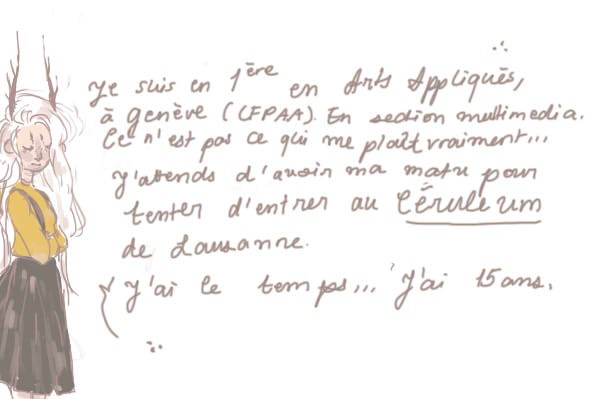 Je suis en 1ère en Arts Appliqués,
à genève (CFPAA). En section multimedia.
Ce n'est pas ce qui me plaît vraiment...
J'attends d'avoir ma matu pour
tenter d'entrer au Céruleum
de Lausanne.
J'ai le temps... J'ai 15 ans.